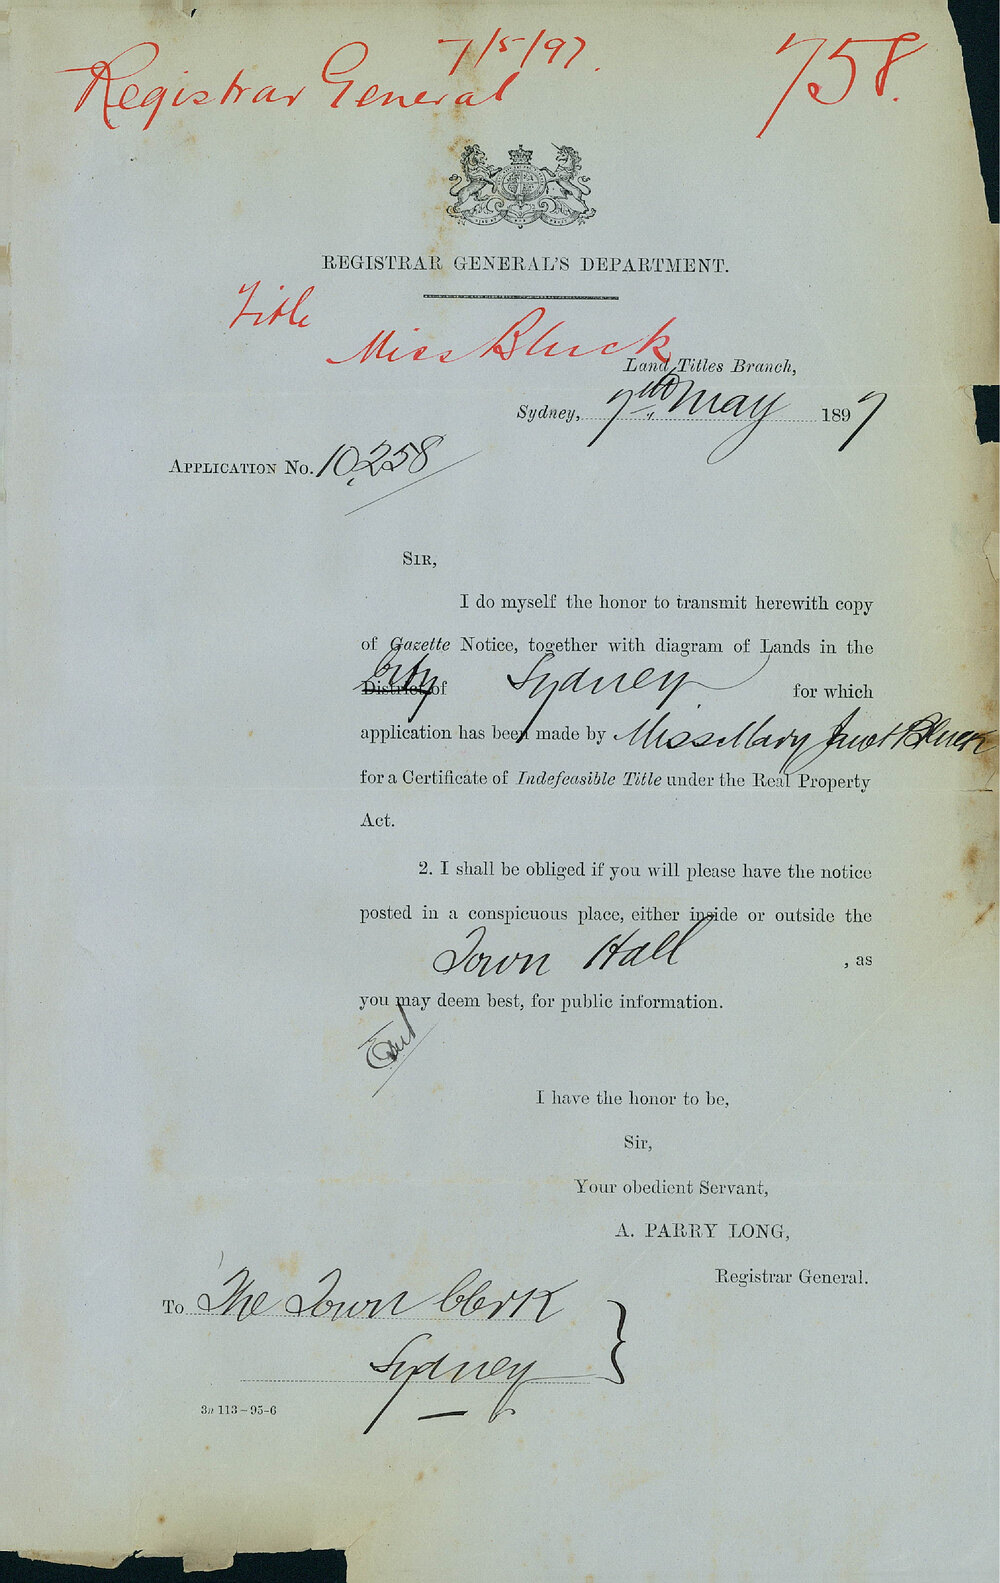 7/5/97.
Registrar General
758.
REGISTRAR GENERAL'S DEPARTMENT.
Title
Miss Bluck
Land Titles Branch,
Sydney, 7th May 1897
APPLICATION No. 10,258
SIR,
I do myself the honor to transmit herewith copy
of Gazette Notice, together with diagram of Lands in the
City
District of Sydney for which
application has been made by Miss Mary Janet Bluck
for a Certificate of Indefeasible Title under the Real Property
Act.
2. I shall be obliged if you will please have the notice
posted in a conspicuous place, either inside or outside the
Town Hall , as
you may deem best, for public information.
I have the honor to be,
Sir,
Your obedient Servant,
A. PARRY LONG,
Registrar General.
To The Town Clerk
Sydney
3n 113–95-6